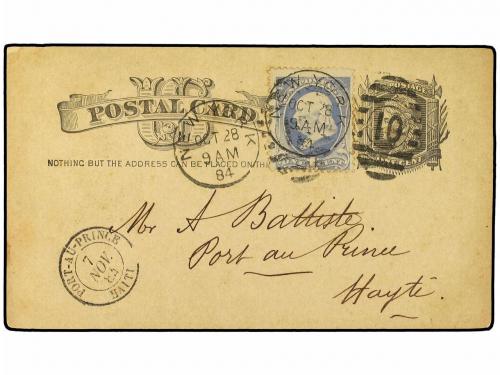 US
POSTAL CARD
NOTHING BUT THE ADDRESS CAN BE PLACED ON THIS
NEW YORK
OCT 28
9 AM
84
NEW YORK
OCT 28
9 AM
84
10
Mr A Battiste
Port au Prince
Hayti.
PORT-AU-PRINCE
7
NOV.
HAITI